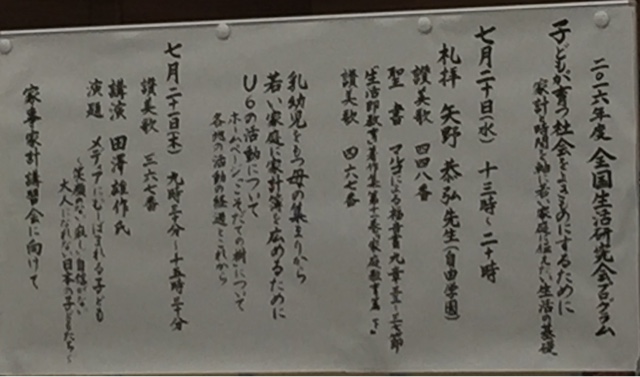 二〇一六年度 全国生活研究会プログラム
子どもが育つ社会をよきものにするために
家計と時間を軸に若い家庭に伝えたい生活の基礎
七月二十日(水) 十三時〜二十時
礼拝 矢野 恭弘先生(自由学園)
讃美歌 四四八番
聖書 マルコによる福音書九章 〜三七節
「生活即教育」著作集第十二巻「家庭教育篇 下」
讃美歌 四六七番
乳幼児をもつ母の集まりから
若い家庭に家計簿を広めるために
U6の活動について
ホームページ「こそだての樹」について
各地の活動の経過とこれから
七月二十一日(木) 九時三十分〜十五時三十分
讃美歌 三六七番
講演 田澤雄作氏
演題 メディアにむしばまれる子ども
〜笑顔のない 哀しい自信がない
大人になれない日本の子どもたち〜
家事家計講習会に向けて